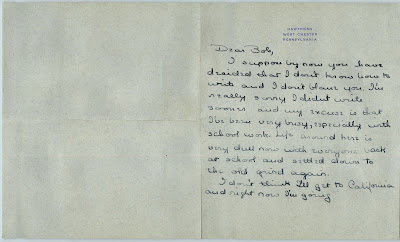 HAWTHORN
WEST CHESTER
PENNSYLVANIA
Dear Bob,
I suppose by now you have
decided that I don't know how to
write and I don't blame you. I'm
really sorry I didn't write
sooner and my excuse is that
I've been very busy, especially with
school work. Life around here is
very dull now with everyone back
at school and settled down to
the old grind again.
I don't think I'll get to California
and right now I'm going